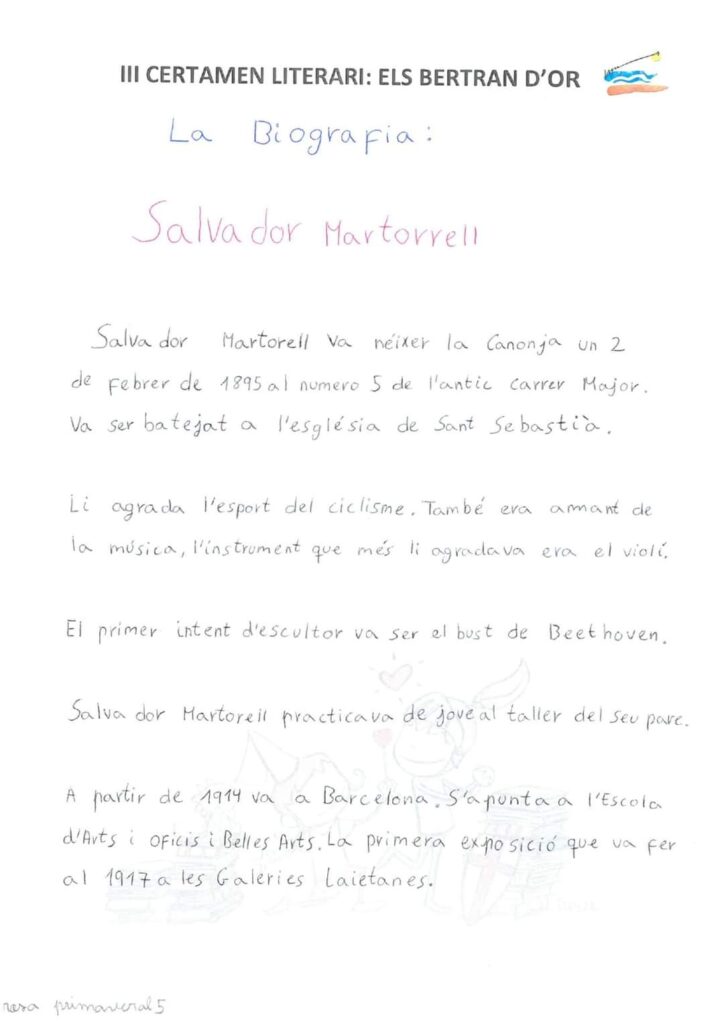 III CERTAMEN LITERARI: ELS BERTRAN D'OR
La Biografia:
Salvador Martorrell
Salvador Martorell va néixer la Canonja un 2
de febrer de 1895 al numero 5 de l'antic carrer Major.
Va ser batejat a l'església de Sant Sebastià.
Li agrada l'esport del ciclisme. També era amant de
la música, l'instrument que més li agradava era el violí.
El primer intent d'escultor va ser el bust de Beethoven.
Salvador Martorell practicava de jove al taller del seu pare.
A partir de 1914 va a Barcelona. S'apunta a l'Escola
d'Arts i oficis i Belles Arts. La primera exposició que va fer
al 1917 a les Galeries Laietanes.
rosa primaveral 5